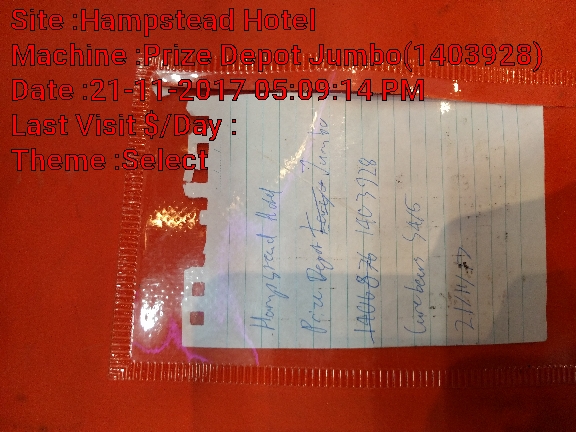 Site :Hampstead Hotel
Machine :Prize Depot Jumbo(1403928)
Date :21-11-2017 05:09:14 PM
Last Visit $/Day :
Theme :Select
Hampstead Hotel
Prize Depot Jumbo
1403928